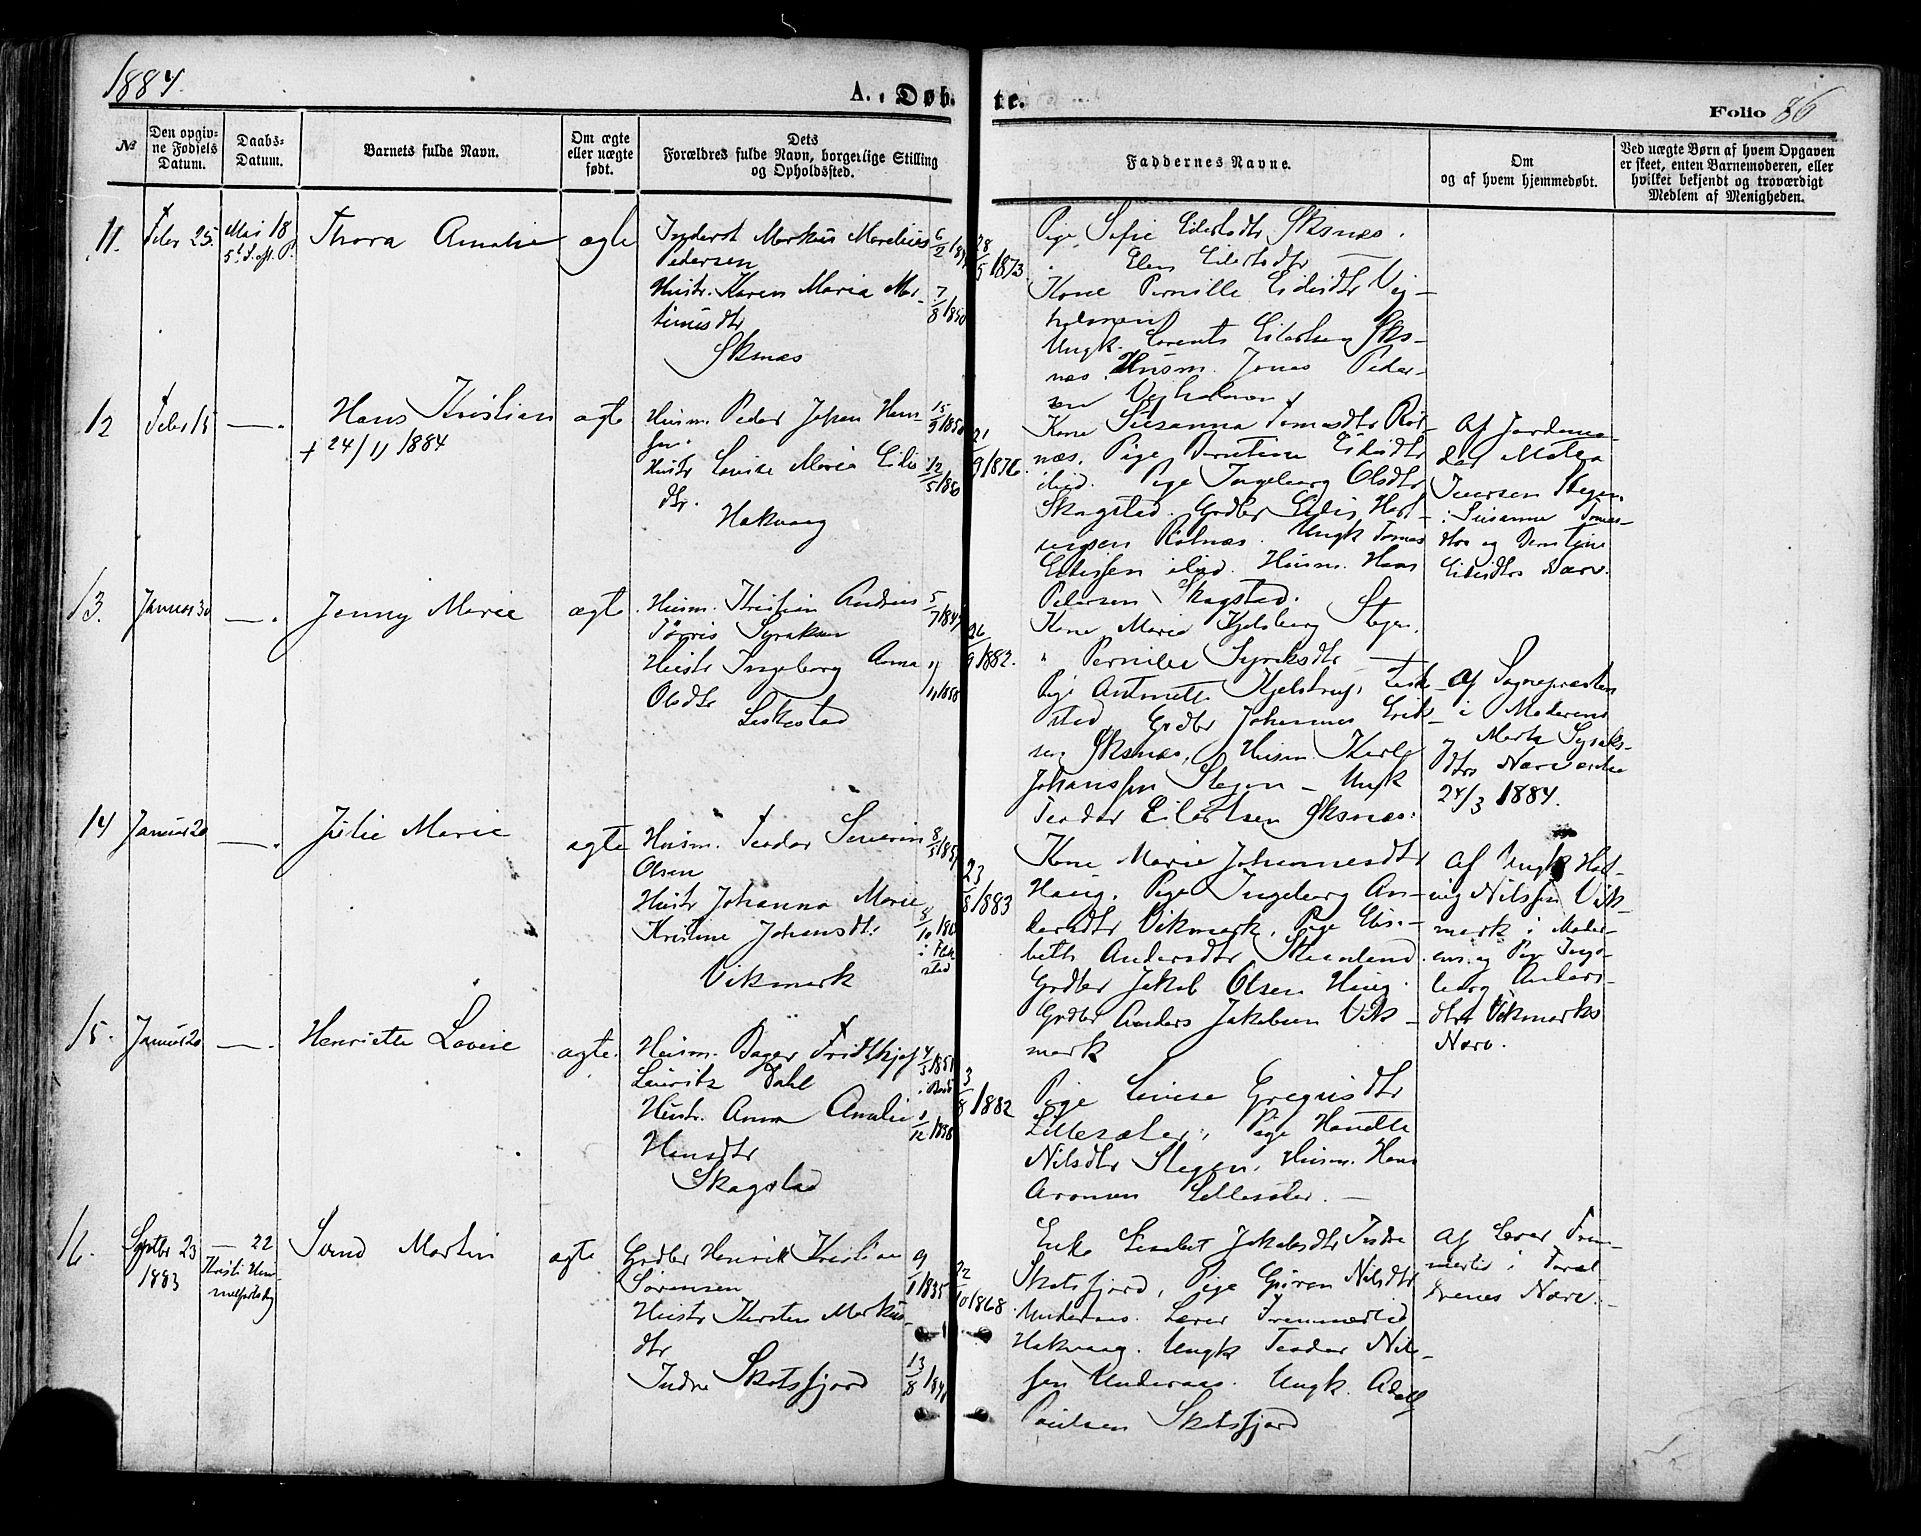 1884.
A. Døb-
te.
Folio 86
№
Den opgiv-
ne Fødsels
Datum.
Daabs-
Datum.
Barnets fulde Navn.
Om ægte
eller uægte
født.
Dets
Forældres fulde Navn, borgerlige Stilling
og Opholdssted.
Faddernes Navne.
Om
og af hvem hjemmedøbt.
Ved uægte Børn af hvem Opgaven
er skeet, enten Barnemoderen, eller
hvilket bekjendt og troværdigt
Medlem af Menigheden.
11.
Febr 25.
Mai 18
5t S. eft. P.
Thora Amalie
ægte
Markus Marelius
Pedersen
Hustr. Karen Maria Mar-
tinusdtr
Øksnæs
6/2
7/8 1850
28/5 1873.
Pige Sofie Eilertsdtr Øksnæs.
" Elen Eilertsdtr —
Kone Pernille Eidisdtr Vig-
holmen
Ungk. Lorents Eilertsen Øks-
næs. Husm. Jonas Peder-
sen Vigholmen
12
Febr 15
—.
Hans Kristian
+ 24/11 1884
ægte
Husm. Peder Johan Han-
sen.
Hustr Lovise Maria Eidis-
dtr.
Hakvaag
12/5 1850
21/9 1876.
Kone Susanna Tomasdtr Röt-
næs. Pige Berntine Eidisdtr
ibid. Pige Ingeborg Olsdtr
Skagstad. Grdbr Eidis Hart-
vigsen Rötnæs. Ungk Tomas
Edissen ibid. Husm. Hans
Pedersen Skagstad.
Af Jordemo-
der Matea
Iversen Stegen
i Susanna Tomas-
dtrs og Berntine
Eidisdtrs Nærv.
13.
Januar 30
—.
Jenny Marie
ægte.
Husm. Kristian Andreas
Tørris Syraksen
Hustr Ingeborg Anna
Olsdtr
Leskestad
5/7
11/11 1858
26/9 1882.
Kone Maria Kjelsberg Stegen.
" Pernille Syraksdtr —
Pige Antonette Kjelstrup, Leske-
stad, Grdbr Johannes Erik-
sen Øksnæs, Husm. Karl
Johanssen Stegen — Ungk
Teodor Eilertsen Øksnæs.
Af Sognepræsten
i Moderens
og Marta Syraks-
dtrs Nærværelse
24/3 1884.
14
Januar 20
—.
Julie Marie
ægte
Husm. Teodor Severin
Olsen
Hustr Johanna Marie
Kristine Johansdtr
Vikmark
23/8 1883
Kone Marie Johannesdtr
Haug, Pige Ingeborg An-
dersdtr Vikmark, Pige Elisa-
beth Andersdtr Skaanland
Grdbr Jakob Olsen Haug.
Grdbr Anders Jakobsen Vik-
mark
Af Ungk Hart-
vig Nilssen Vik-
mark i Moder-
ens og Pige Inge-
borg Anders-
dtr Vikmarks
Nærv.
15.
Januar 20
—.
Henriette Lovise
ægte.
Husm. Birger Fridthjof
Lauritz Dahl
Hustr. Anna Amalie
Hansdtr
Skagstad
3/8 1882
Pige Lovise Gregusdtr
Lillesæter, Pige Hanette
Nilsdtr Stegen. Husm. Hans
Aronsen Lillesæter. —
16.
Septbr 23
1883
— 22
Kristi Him-
melfartsdag
Martin
ægte
Grdbr Henrik Kristian
Sørensen
Hustr Kersten Markus-
dtr
Indre Skotsfjord
9/1 1835
13/8
22/10 1868.
Enke Elisabet Jakobsdtr Indre
Skotsfjord, Pige Guren Nilsdtr
Underaas. Lærer Fremmerlid
Hakvaag. Ungk Teodor Nils-
sen Underaas. Ungk. Adolf
Paulsen Skotsfjord
Af Lærer Frem-
merlid i Foræl-
drenes Nærv.